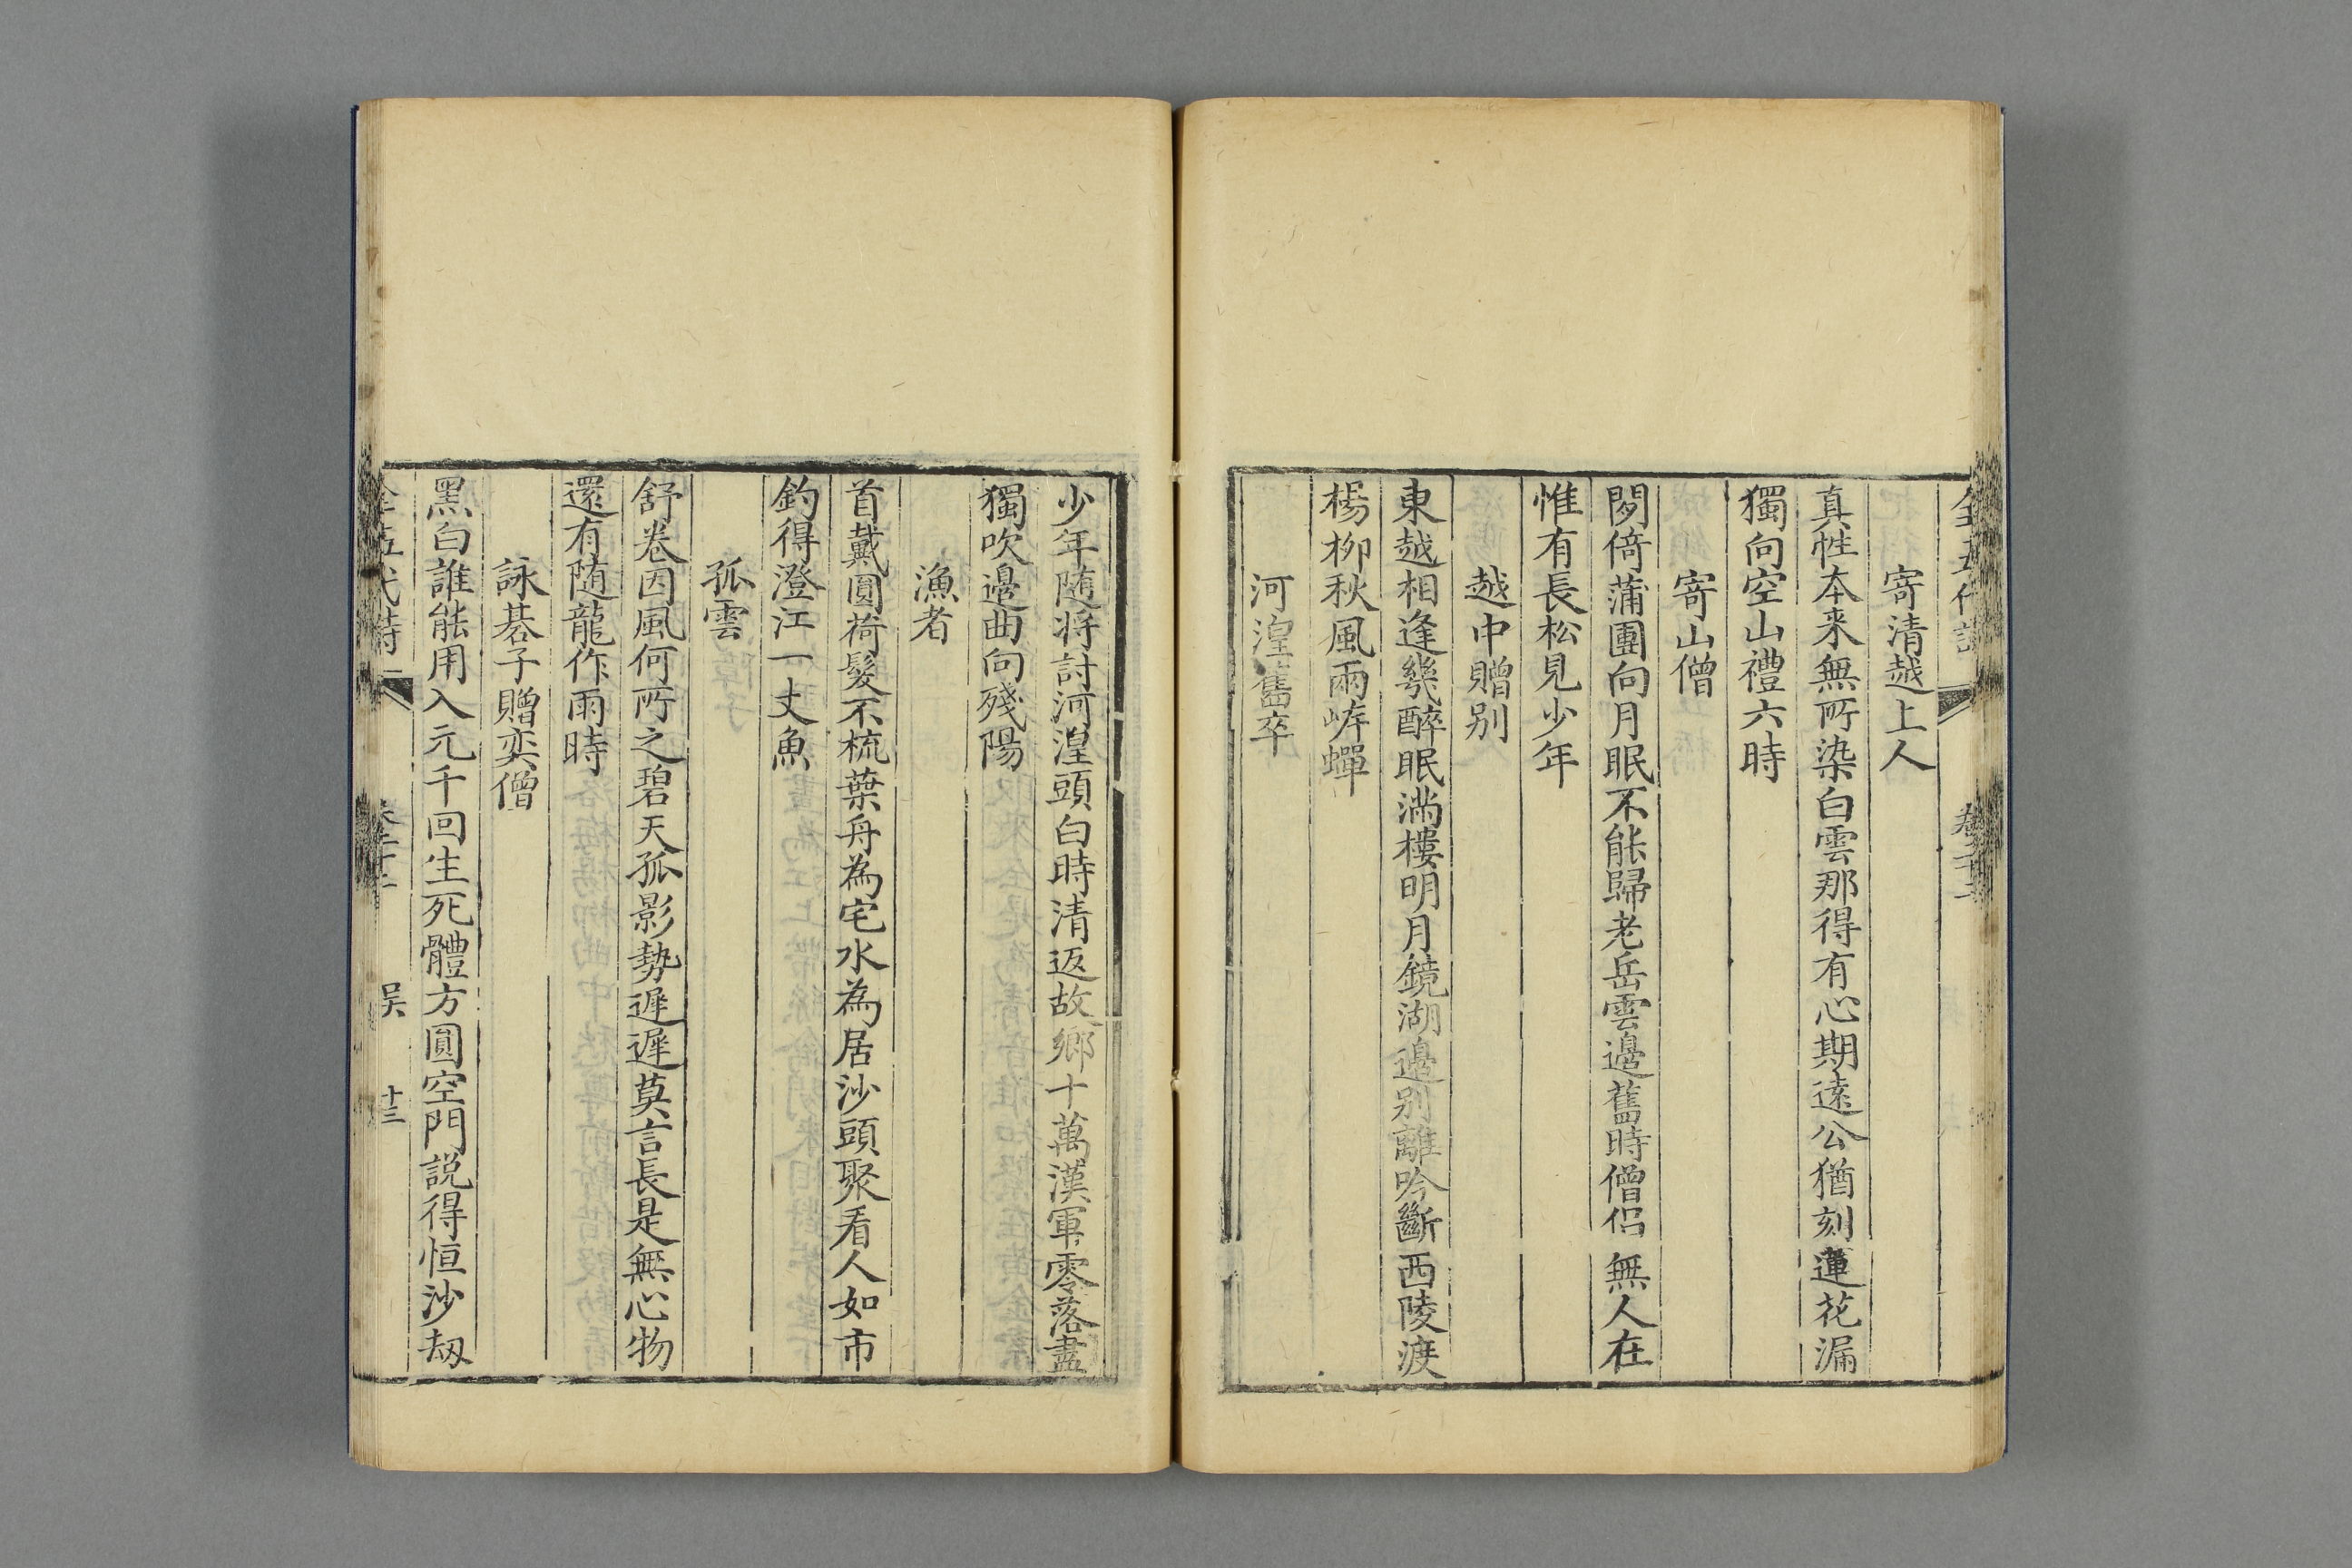 寄清越上人
真性本来無所染白雲那得有心期遠公猶刻蓮花漏
獨向空山禮六時
寄山僧
閑倚蒲團向月眠不能歸老岳雲邊舊時僧侣無人在
惟有長松見少年
越中贈别
東越相逢幾醉眠滿樓明月鏡湖邊别離吟斷西陵渡
楊柳秋風兩岸蟬
河湟舊卒
少年随将討河湟頭白時清返故鄉十萬漢軍零落盡
獨吹邊曲向殘陽
漁者
首戴圓荷髮不梳葉舟為宅水為居沙頭聚看人如市
釣得澄江一丈魚
孤雲
舒卷因風何所之碧天孤影勢遲遲莫言長是無心物
還有随龍作雨時
詠碁子贈奕僧
黑白誰能用入元千回生死體方圓空門説得恒沙刼
全五代詩
吴
十三